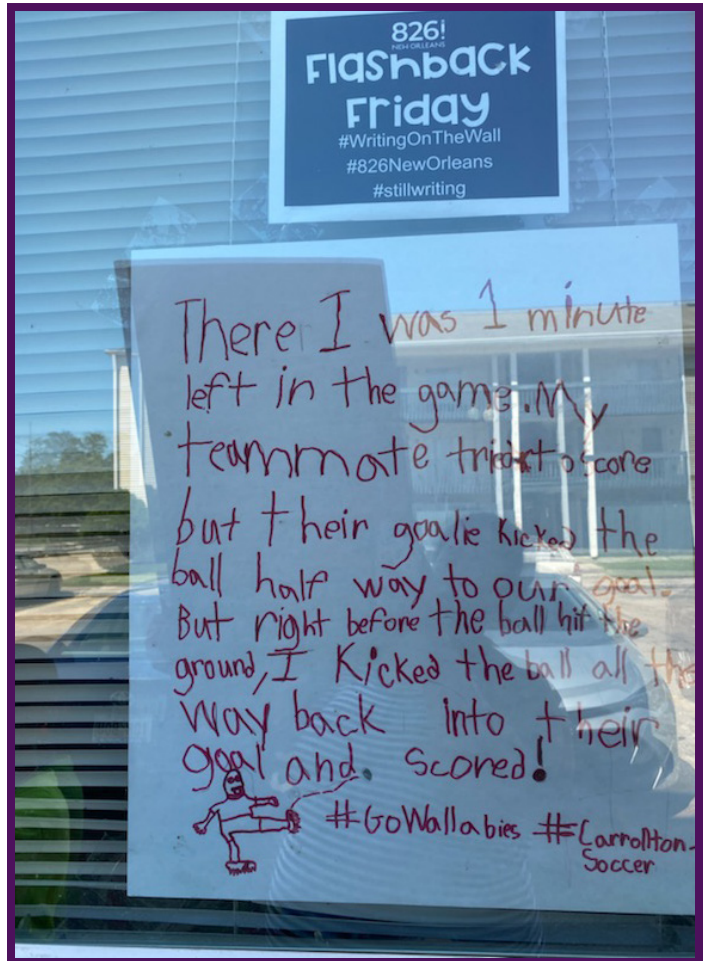 826!
NEW ORLEANS
Flashback
Friday
#WritingOnTheWall
#826NewOrleans
#stillwriting
There I was 1 minute
left in the game. My
teammate tried to score
but their goalie kicked the
ball half way to our goal.
But right before the ball hit the
ground, I kicked the ball all the
way back into their
goal and scored!
#GoWallabies #Carrollton-
Soccer